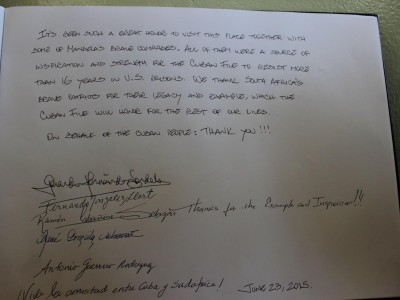 IT'S BEEN SUCH A GREAT HONOR TO VISIT THIS PLACE TOGETHER WITH
SOME OF MANDELA'S BRAVE COMRADES. ALL OF THEM WERE A SOURCE OF
INSPIRATION AND STRENGTH FOR THE CUBAN FIVE TO RESIST MORE
THAN 16 YEARS IN U.S. PRISONS. WE THANK SOUTH AFRICA'S
BRAVE PATRIOTS FOR THEIR LEGACY AND EXAMPLE, WHICH THE
CUBAN FIVE WILL HONOR FOR THE REST OF OUR LIVES.
ON BEHALF OF THE CUBAN PEOPLE: THANK YOU!!!
Fernando González Llort
Ramón Thanks for the Example and Inspiration!!!
René González
Antonio Guerrero Rodríguez
¡Viva la amistad entre Cuba y Sudáfrica! June 23, 2015.